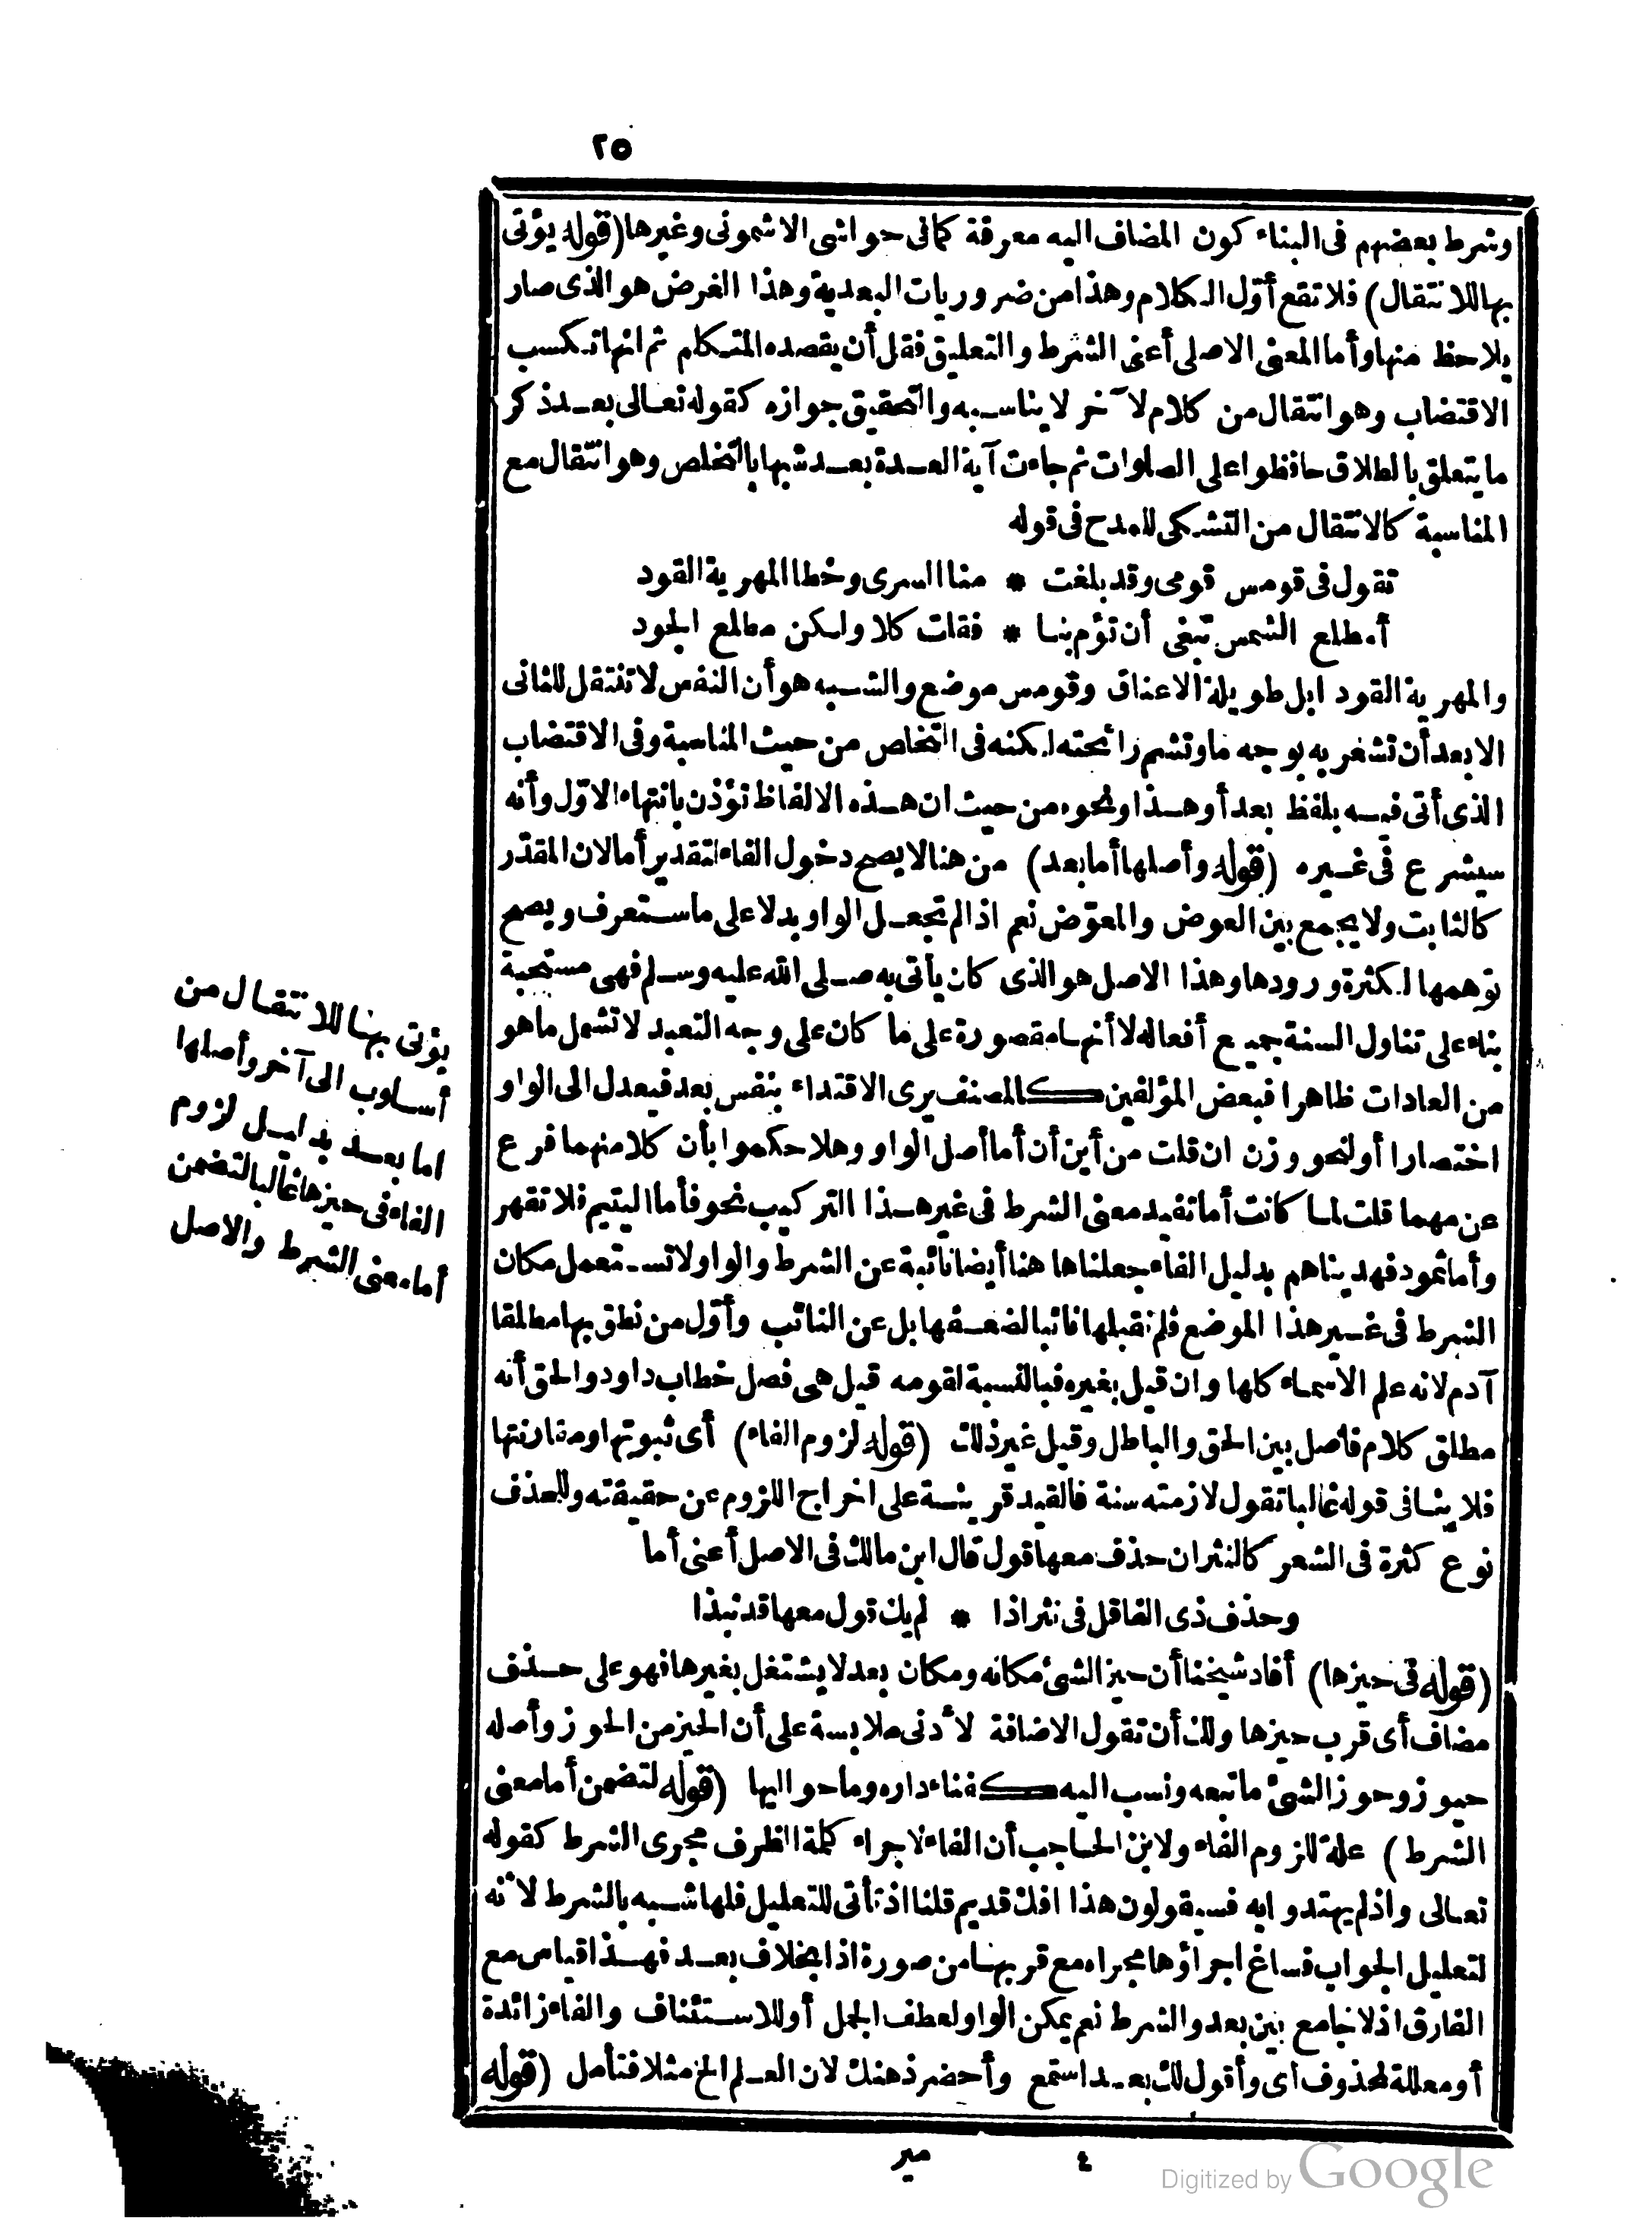 ٢٥
وشرط بعضهم فى البناء كون المضاف اليه معرفة كما فى حواشى الاشمونى وغيرها (قوله يؤتى
بها للانتقال) فلا تقع أوّل الكلام وهذا من ضروريات البعدية وهذا الغرض هو الذى صار
يلاحظ منها وأما المعنى الاصلى أعنى الشرط والتعليق فقل أن يقصده المتكلم ثم انها تكسب
الاقتضاب وهو انتقال من كلام لآخر لا يناسبه والتحقيق جوازه كقوله تعالى بعد ذكر
ما يتعلق بالطلاق حافظوا على الصلوات ثم جاءت آية العدة بعد شبها بالتخلص وهو انتقال مع
المناسبة كالانتقال من التشكى للمدح فى قوله
تقول فى قومس قومى وقد بلغت * منا السرى وخطا المهرية القود
أمطلع الشمس تبغى أن تؤم بنا * فقلت كلا ولكن مطلع الجود
والمهرية القود ابل طويلة الاعناق وقومس موضع والشبه هو أن النفس لا تنتقل للثانى
الا بعد أن تشعر به بوجه ما وتشم رائحته لكنه فى التخلص من حيث المناسبة وفى الاقتضاب
الذى أتى فيه بلفظ بعد أو هذا ونحوه من حيث ان هذه الالفاظ تؤذن بانتهاء الاوّل وأنه
سيشرع فى غيره (قوله وأصلها أما بعد) من هنا لا يصح دخول الفاء لتقدير أما لان المقدّر
كالثابت ولا يجمع بين العوض والمعوّض نعم اذا لم تجعل الواو بدلا على ما ستعرف ويصح
توهمها لكثرة ورودها وهذا الاصل هو الذى كان يأتى به صلى الله عليه وسلم فهى مستحبة
بناء على تناول السنة جميع أفعاله لا أنها مقصورة على ما كان على وجه التعبد لا تشمل ما هو
من العادات ظاهرا فبعض المؤلفين كالمصنف يرى الاقتداء بنفس بعد فيعدل الى الواو
اختصارا أو لنحو وزن ان قلت من أين أن أما أصل الواو وهلا حكموا بأن كلا منهما فرع
عن مهما قلت لما كانت أما تفيد معنى الشرط فى غير هذا التركيب نحو فأما اليتيم فلا تقهر
وأما ثمود فهديناهم بدليل الفاء جعلناها هنا أيضا نائبة عن الشرط والواو لا تستعمل مكان
الشرط فى غير هذا الموضع فلم نقبلها نائبا لضعفها بل عن النائب وأوّل من نطق بها مطلقا
آدم لانه علم الاسماء كلها وان قيل بغيره فبالنسبة لقومه قيل هى فصل خطاب داود والحق أنه
مطلق كلام فاصل بين الحق والباطل وقيل غير ذلك (قوله لزوم الفاء) أى ثبوتها ومقارنتها
فلا ينافى قوله غالبا تقول لازمته سنة فالقيد قرينة على اخراج اللزوم عن حقيقته وللحذف
نوع كثرة فى الشعر كالنثر ان حذف معها قول قال ابن مالك فى الاصل أعنى أما
وحذف ذى الفا قل فى نثر اذا * لم يك قول معها قد نبذا
(قوله فى حيزها) أفاد شيخنا أن حيز الشئ مكانه ومكان بعد لا يشتغل بغيرها فهو على حذف
مضاف أى قرب حيزها ولك أن تقول الاضافة لأدنى ملابسة على أن الحيز من الحوز وأصله
حيوز وحوز الشئ ما تبعه ونسب اليه كفناء داره وما حواليها (قوله لتضمن أما معنى
الشرط) علة للزوم الفاء ولابن الحاجب أن الفاء لاجراء كلمة الظرف مجرى الشرط كقوله
تعالى واذ لم يهتدوا به فسيقولون هذا افك قديم قلنا اذ تأتى للتعليل فلها شبه بالشرط لأنه
لتعليل الجواب فساغ اجراؤها مجراه مع قربها من صورة اذا بخلاف بعد فهذا قياس مع
الفارق اذ لا جامع بين بعد والشرط نعم يمكن الواو لعطف الجمل أو للاستئناف والفاء زائدة
أو معللة لمحذوف أى وأقول لك بعد استمع وأحضر ذهنك لان العلم الخ مثلا فتأمل (قوله
يؤتى بها للانتقال من
أسلوب الى آخر وأصلها
اما بعد بدليل لزوم
الفاء فى حيزها غالبا لتضمن
أما معنى الشرط والاصل
٤ مير
Digitized by Google